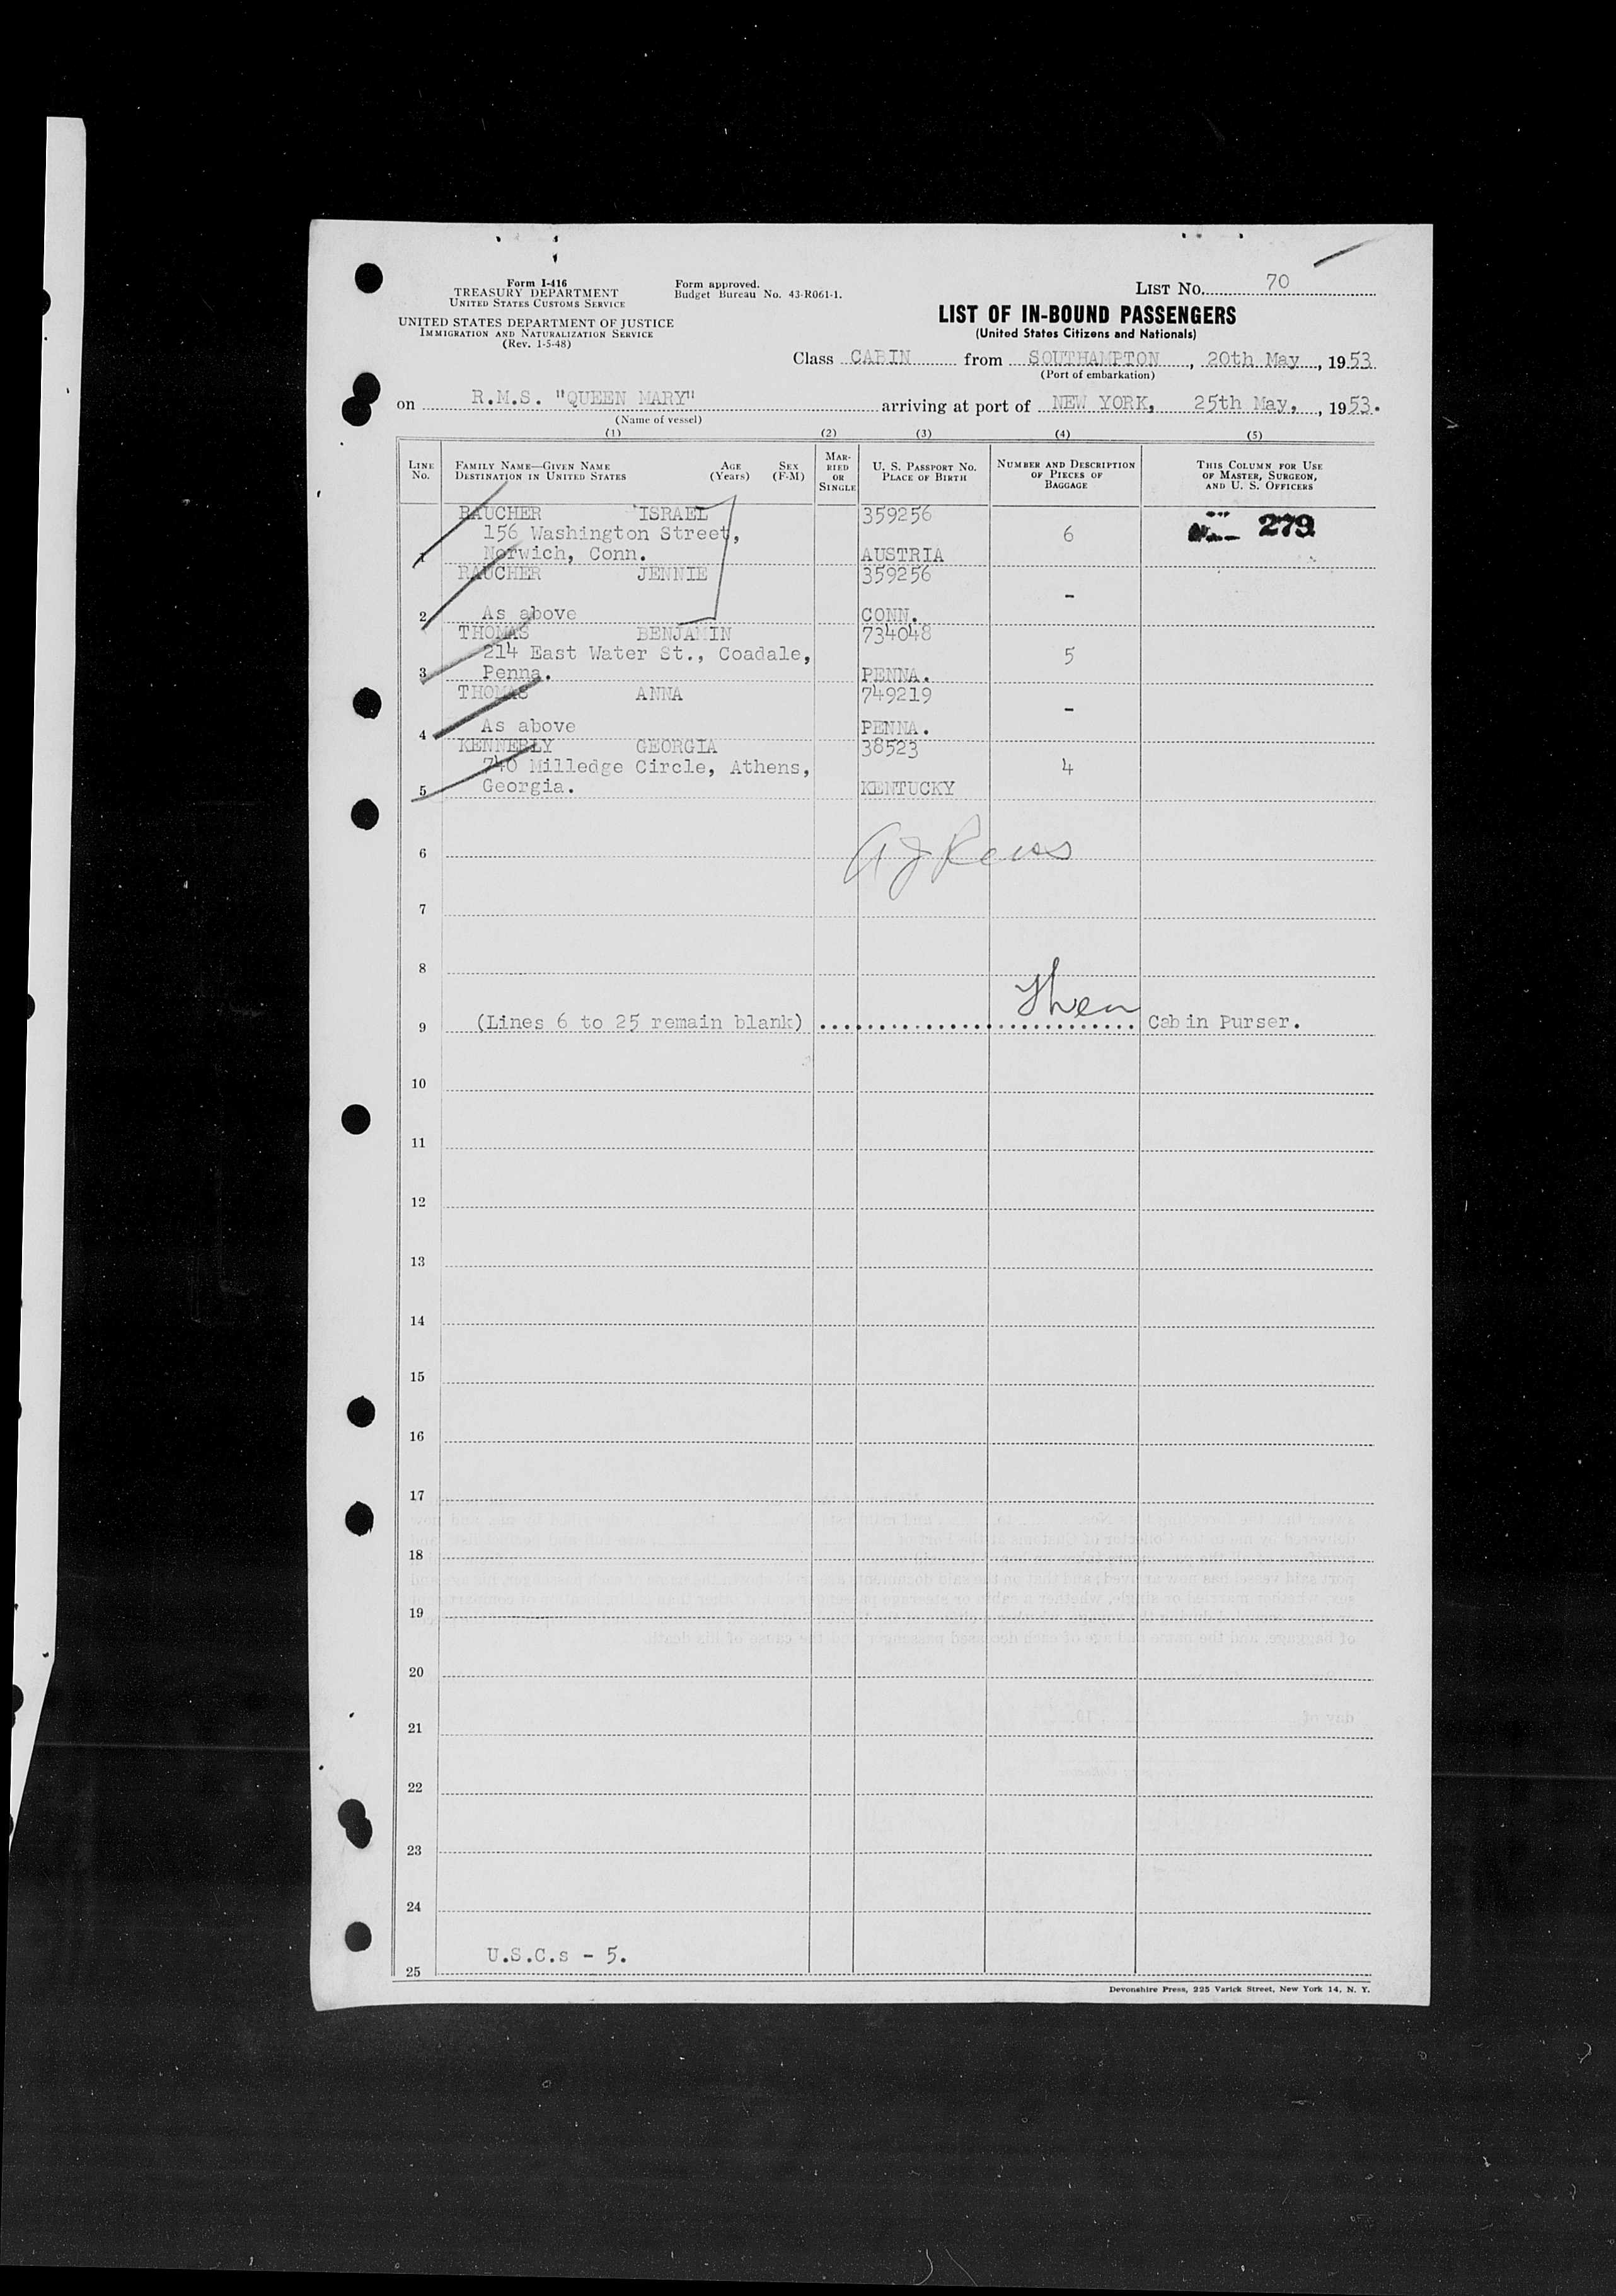 Form I-416
TREASURY DEPARTMENT
UNITED STATES CUSTOMS SERVICE
UNITED STATES DEPARTMENT OF JUSTICE
IMMIGRATION AND NATURALIZATION SERVICE
(Rev. 1-5-48)
Form approved.
Budget Bureau No. 43-R061-1.
LIST NO. 70
LIST OF IN-BOUND PASSENGERS
(United States Citizens and Nationals)
Class CABIN from SOUTHAMPTON, 20th May, 1953
(Port of embarkation)
on R.M.S. "QUEEN MARY" arriving at port of NEW YORK, 25th May, , 1953.
(Name of vessel)
(1) (2) (3) (4) (5)
LINE NO.
FAMILY NAME—GIVEN NAME AGE SEX
DESTINATION IN UNITED STATES (Years) (F-M)
MARRIED OR SINGLE
U. S. PASSPORT NO.
PLACE OF BIRTH
NUMBER AND DESCRIPTION
OF PIECES OF
BAGGAGE
THIS COLUMN FOR USE
OF MASTER, SURGEON,
AND U. S. OFFICERS
RAUCHER ISRAEL 359256
156 Washington Street, 6 279
1 Norwich, Conn. AUSTRIA
RAUCHER JENNIE 359256
-
2 As above CONN.
THOMAS BENJAMIN 734048
214 East Water St., Coadale, 5
3 Penna. PENNA.
THOMAS ANNA 749219
-
4 As above PENNA.
KENNERLY GEORGIA 38523
740 Milledge Circle, Athens, 4
5 Georgia. KENTUCKY
6
7
8
9 (Lines 6 to 25 remain blank) Cabin Purser.
10
11
12
13
14
15
16
17
18
19
20
21
22
23
24
U.S.C.s - 5.
25
Devonshire Press, 225 Varick Street, New York 14, N. Y.